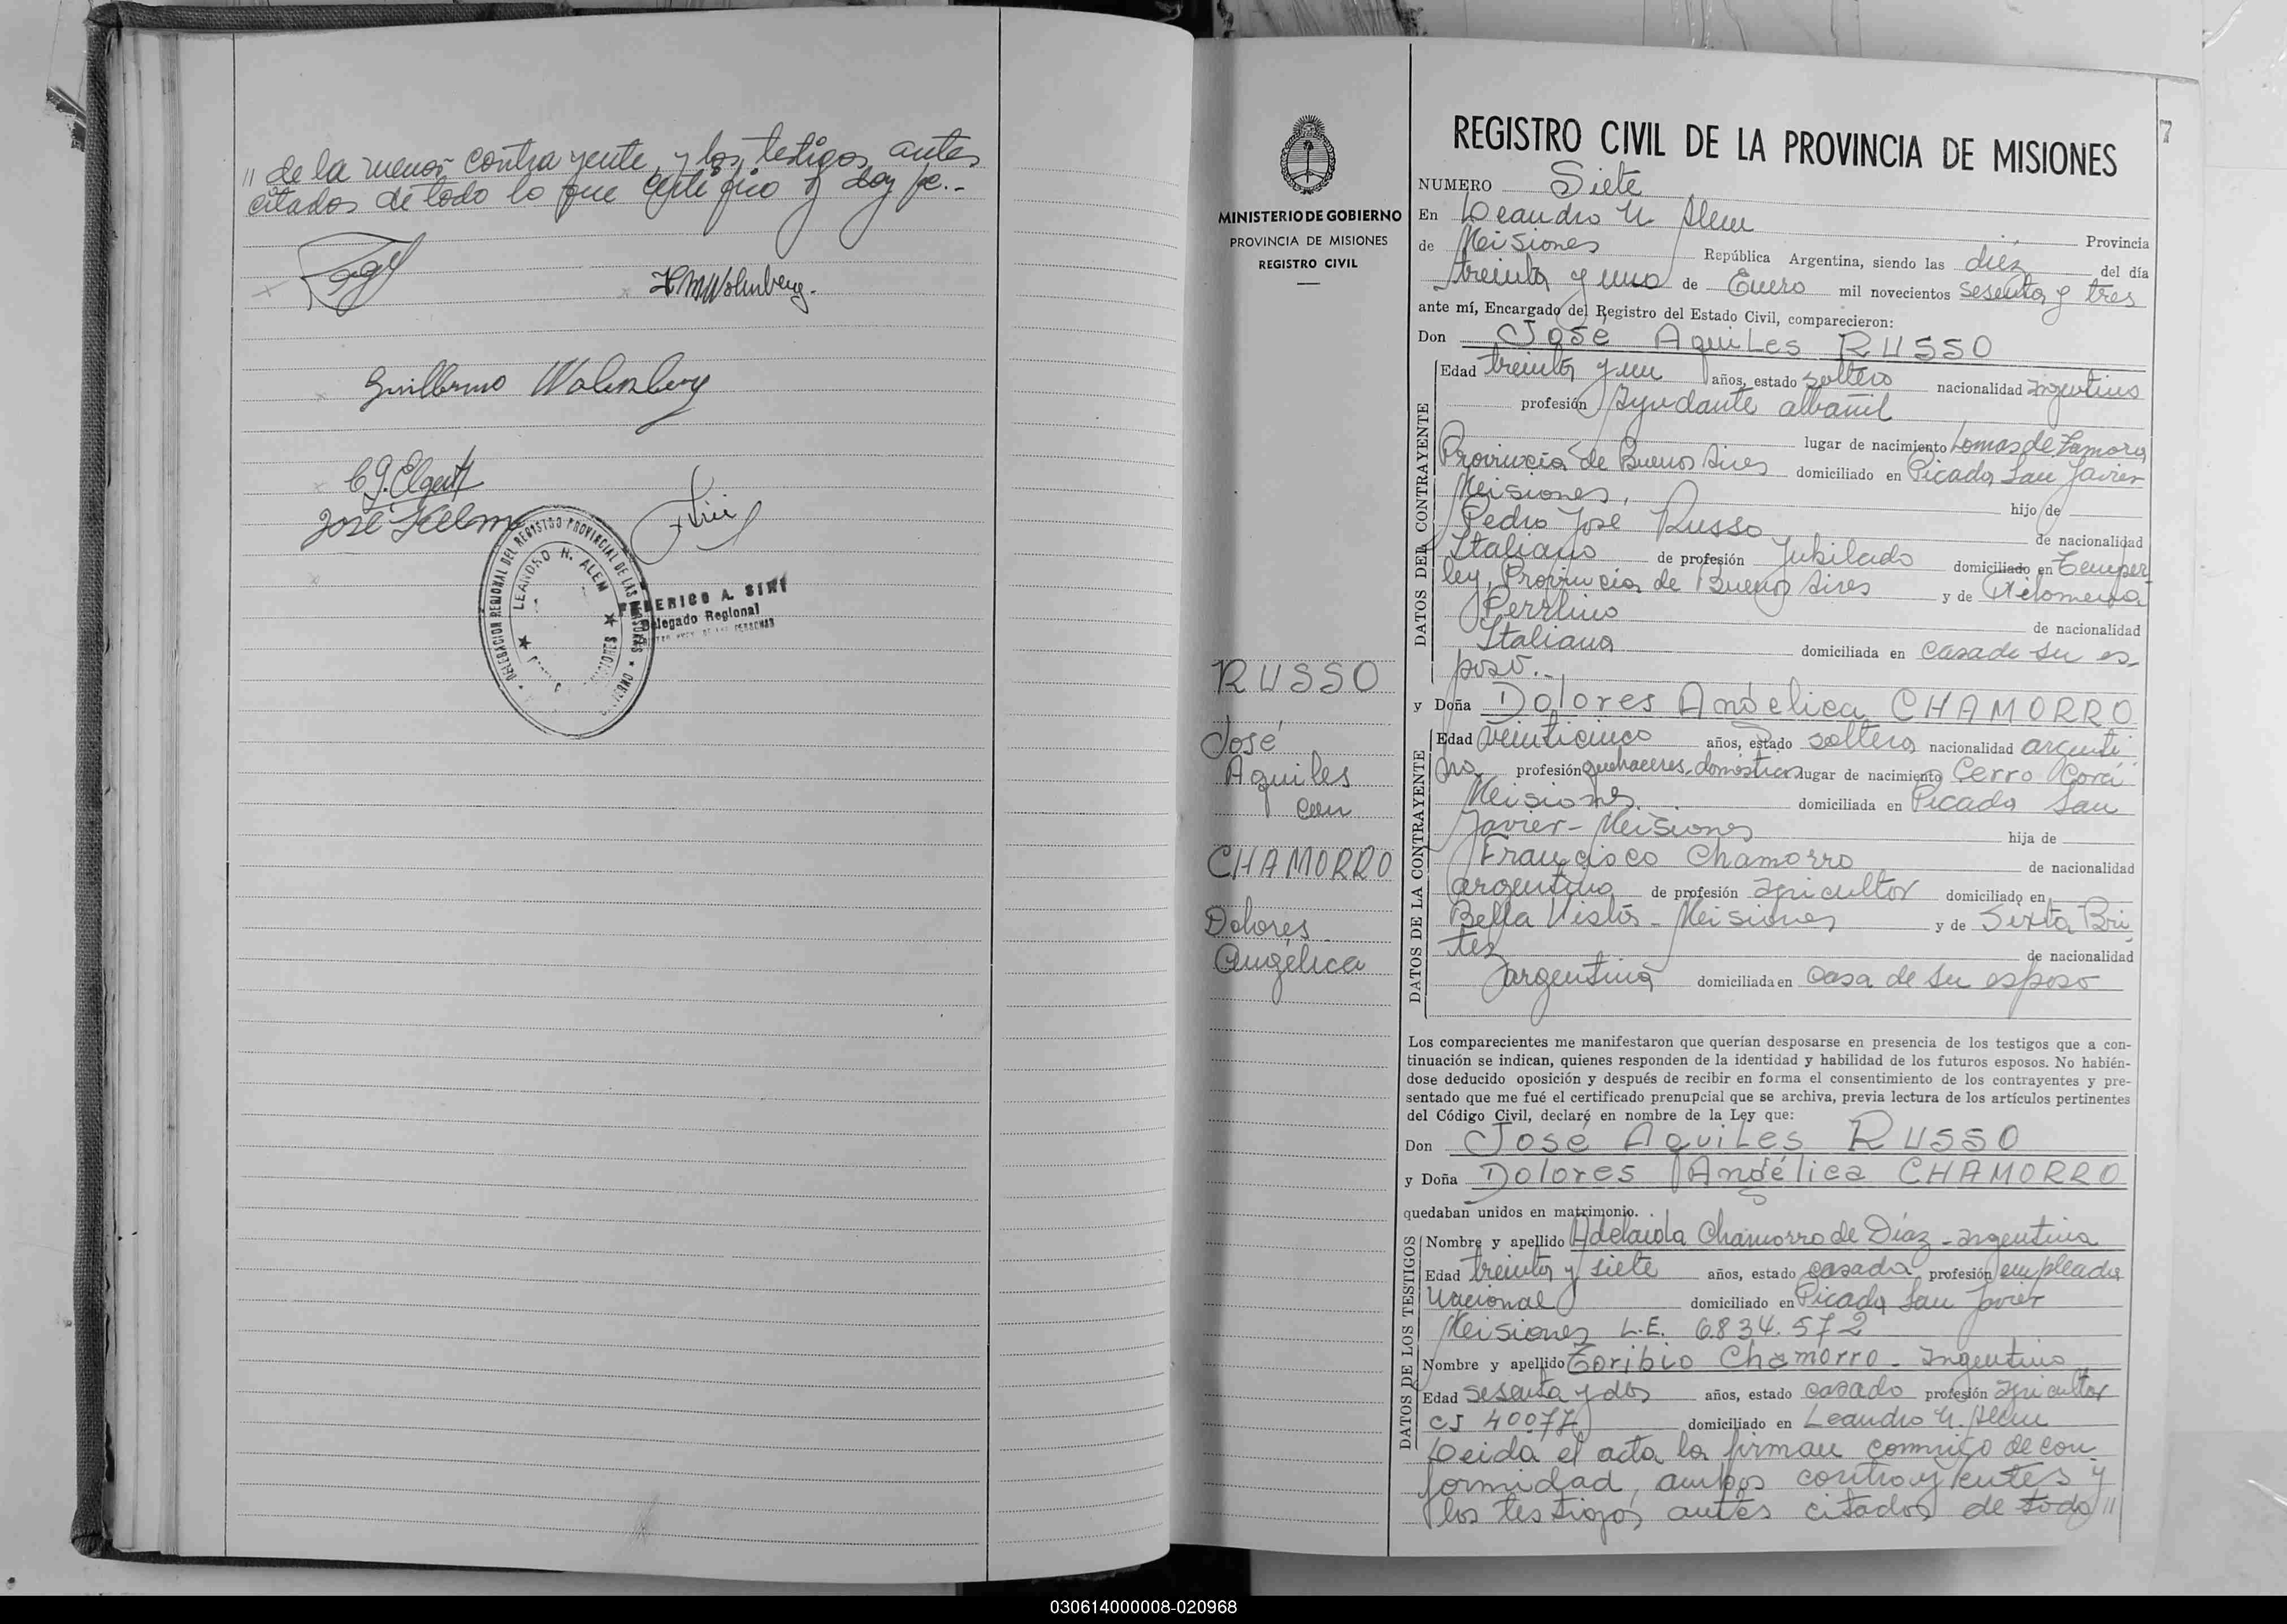 " de la menor contrayente, y los testigos antes
citados de todo lo que certifico y doy fe.-
H M Wolenberg.
Guillermo Wolenberg
C G. Elgert
José Kelm
DELEGACION REGIONAL DEL REGISTRO PROVINCIAL DE LAS PERSONAS
LEANDRO N. ALEM
MISIONES
FEDERICO A. SIRI
Delegado Regional
7
MINISTERIO DE GOBIERNO
PROVINCIA DE MISIONES
REGISTRO CIVIL
RUSSO
José
Aquiles
con
CHAMORRO
Dolores
Angélica
REGISTRO CIVIL DE LA PROVINCIA DE MISIONES
NUMERO Siete
En Leandro N. Alem Provincia
de Misiones República Argentina, siendo las diez del día
treinta y uno de Enero mil novecientos sesenta y tres
ante mí, Encargado del Registro del Estado Civil, comparecieron:
Don José Aquiles RUSSO
DATOS DEL CONTRAYENTE
Edad treinta y un años, estado soltero nacionalidad argentino
profesión Ayudante albañil
lugar de nacimiento Lomas de Zamora
Provincia de Buenos Aires domiciliado en Picada San Javier
Misiones, hijo de
Pedro José Russo de nacionalidad
Italiano de profesión Jubilado domiciliado en Temper-
ley, Provincia de Buenos Aires y de Filomena
Perrlino de nacionalidad
Italiana domiciliada en casa de su es-
poso.-
y Doña Dolores Angélica CHAMORRO
DATOS DE LA CONTRAYENTE
Edad veinticinco años, estado soltera nacionalidad argenti-
na profesión quehaceres domésticos lugar de nacimiento Cerro Corá
Misiones. domiciliada en Picada San
Javier - Misiones hija de
Francisco Chamorro de nacionalidad
argentino de profesión agricultor domiciliado en
Bella Vista - Misiones y de Sixta Bri-
tez de nacionalidad
argentina domiciliada en casa de su esposo
Los comparecientes me manifestaron que querían desposarse en presencia de los testigos que a con-
tinuación se indican, quienes responden de la identidad y habilidad de los futuros esposos. No habién-
dose deducido oposición y después de recibir en forma el consentimiento de los contrayentes y pre-
sentado que me fué el certificado prenupcial que se archiva, previa lectura de los artículos pertinentes
del Código Civil, declaré en nombre de la Ley que:
Don José Aquiles RUSSO
y Doña Dolores Angélica CHAMORRO
quedaban unidos en matrimonio.
DATOS DE LOS TESTIGOS
Nombre y apellido Adelaida Chamorro de Díaz - argentina
Edad treinta y siete años, estado casada profesión empleada
Nacional domiciliado en Picada San Javier
Misiones L.E. 6.834.572
Nombre y apellido Toribio Chamorro - argentino
Edad sesenta y dos años, estado casado profesión agricultor
CI 40077 domiciliado en Leandro N. Alem
Leida el acta la firman conmigo de con
formidad, ambos contrayentes y
los testigos antes citados de todo "
030614000008-020968